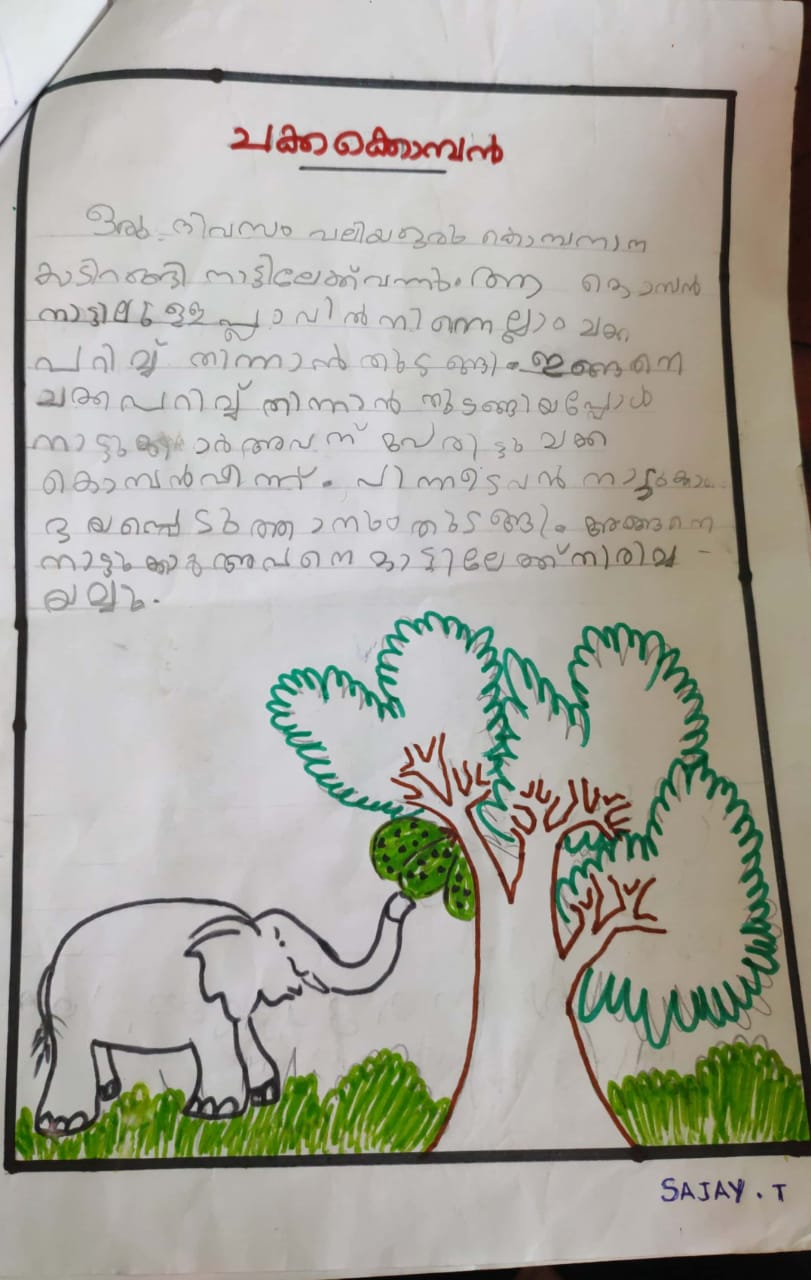 ചക്കക്കൊമ്പൻ
ഒരു ദിവസം വലിയഒരു കൊമ്പനാന
കാടിറങ്ങി നാട്ടിലേക്ക് വന്നു. ആ കൊമ്പൻ
നാട്ടിലുള്ള പ്ലാവിൽനിന്നെല്ലാം ചക്ക
പറിച്ച് തിന്നാൻ തുടങ്ങി. ഇങ്ങനെ
ചക്കപറിച്ച് തിന്നാൻ തുടങ്ങിയപ്പോൾ
നാട്ടുകാർ അവന് പേരിട്ടു ചക്ക
കൊമ്പൻ പിന്നീടവൻ
തുടങ്ങി. അങ്ങനെ
അവനെ കാട്ടിലേക്ക് തിരിച്ച -
യച്ചു.
SAJAY.T